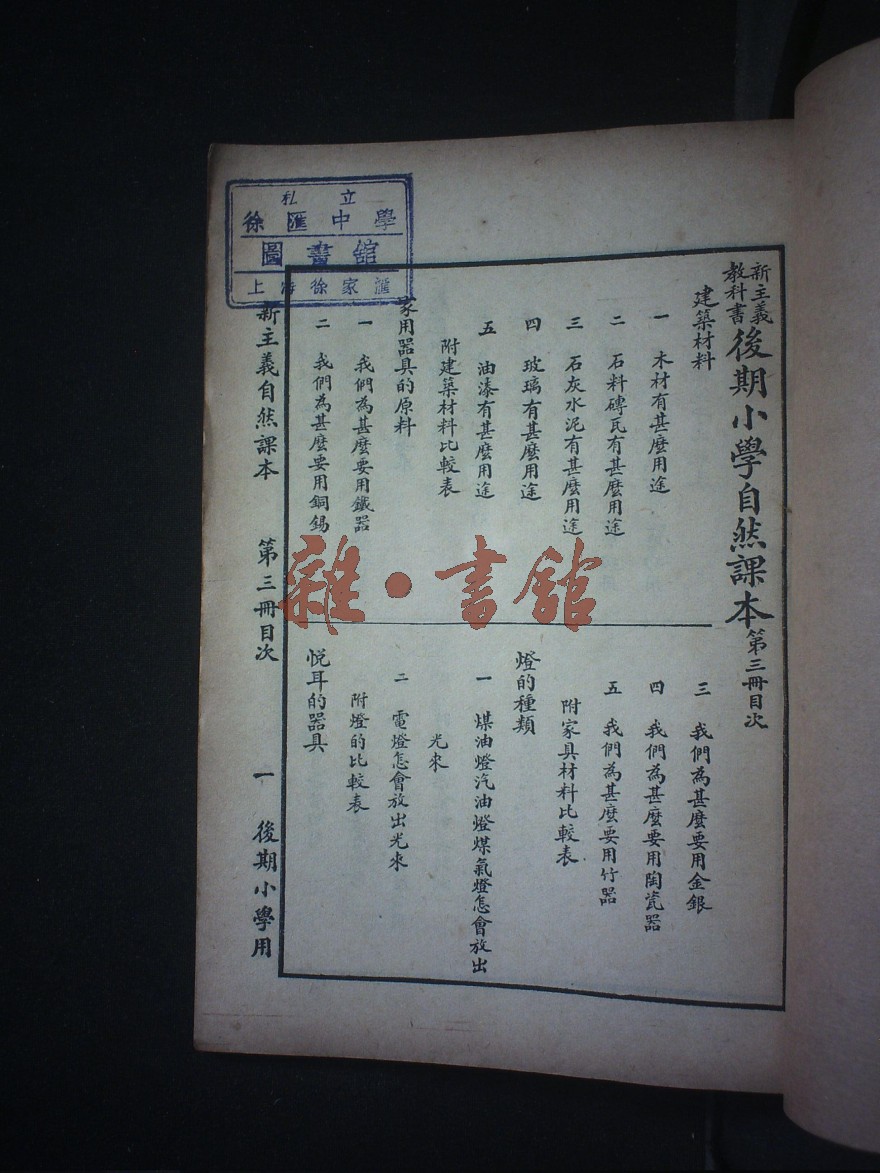 私立
徐匯中學
圖書館
上海徐家匯
新主義
教科書
後期小學自然課本 第三冊目次
建築材料
一 木材有甚麼用途
二 石料磚瓦有甚麼用途
三 石灰水泥有甚麼用途
四 玻璃有甚麼用途
五 油漆有甚麼用途
附建築材料比較表
家用器具的原料
一 我們為甚麼要用鐵器
二 我們為甚麼要用銅錫
三 我們為甚麼要用金銀
四 我們為甚麼要用陶瓷器
五 我們為甚麼要用竹器
附家具材料比較表
燈的種類
一 煤油燈汽油燈煤氣燈怎會放出
光來
二 電燈怎會放出光來
附燈的比較表
悅耳的器具
新主義自然課本 第三冊目次 一 後期小學用
雜·書館